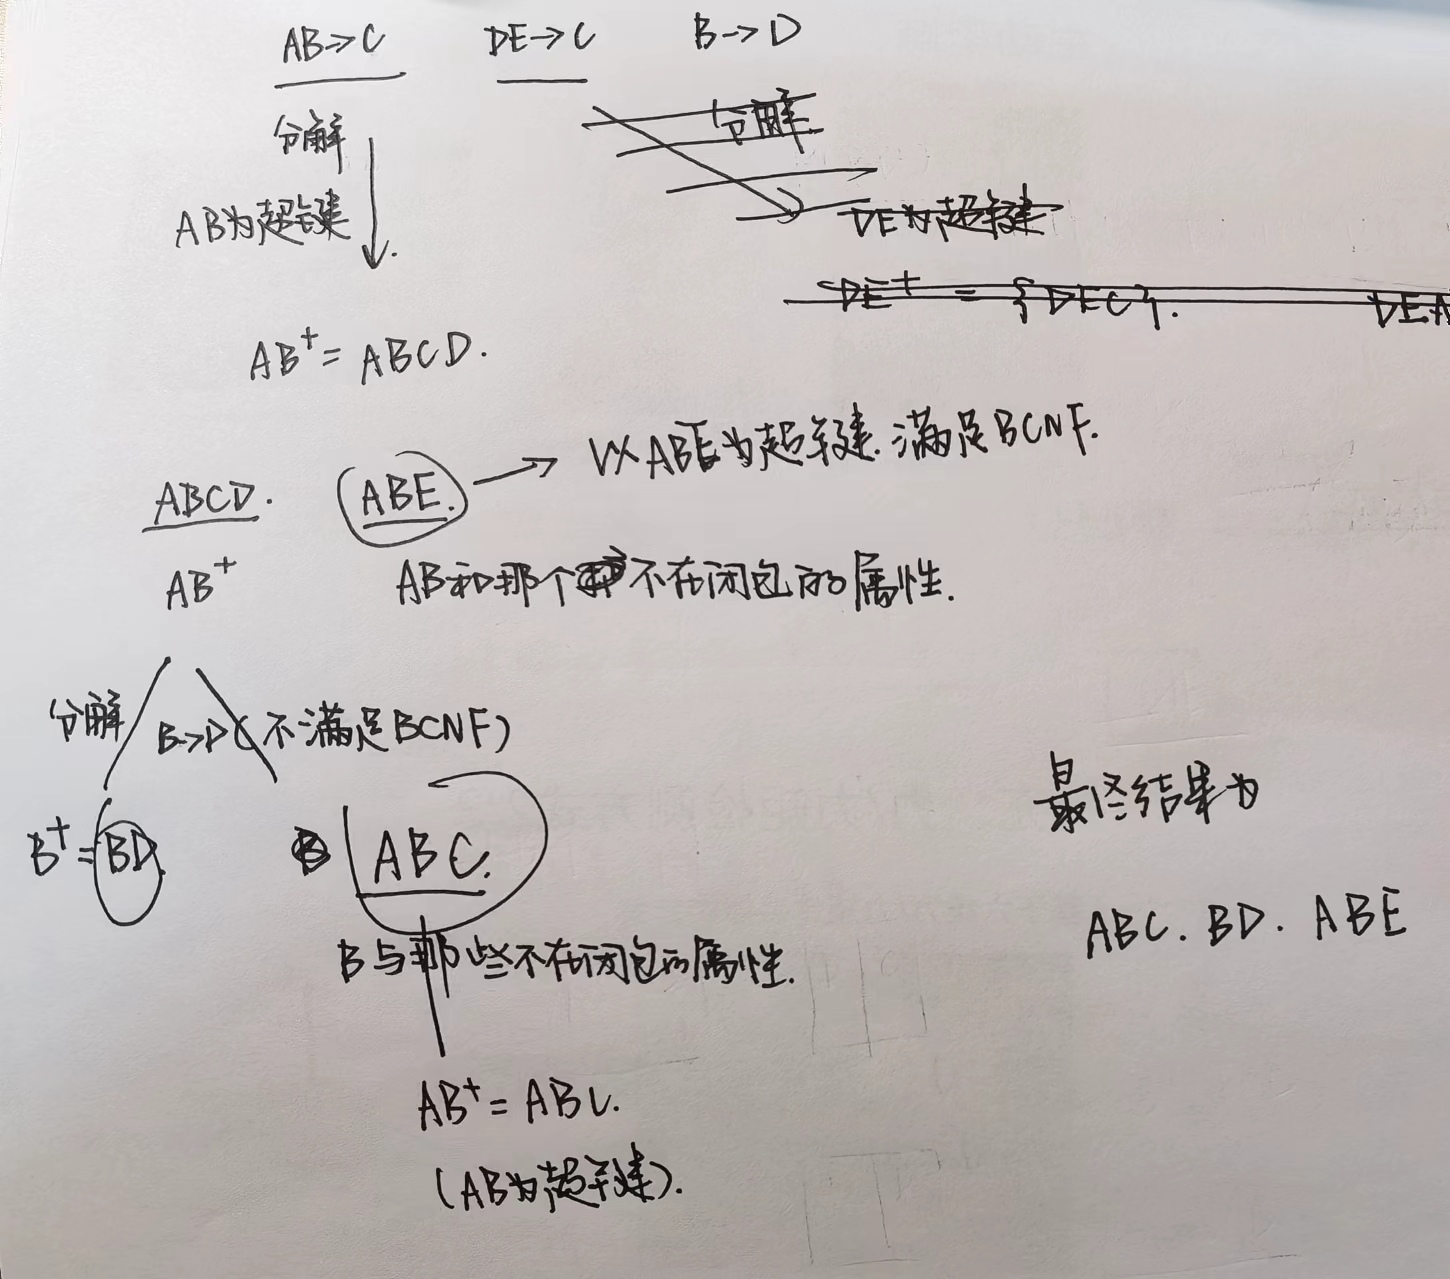 AB→C DE→C B→D
分解
分解
AB为超键
DE为超键
DE⁺ = {DEC}. DEA
AB⁺ = ABCD.
ABCD. ABE. → 以ABE为超键.满足BCNF.
AB⁺ AB和那个不在闭包的属性.
分解 B→D(不满足BCNF)
B⁺=BD. ABC.
B与那些不在闭包的属性.
AB⁺ = ABC.
(AB为超键).
最终结果为
ABC. BD. ABE